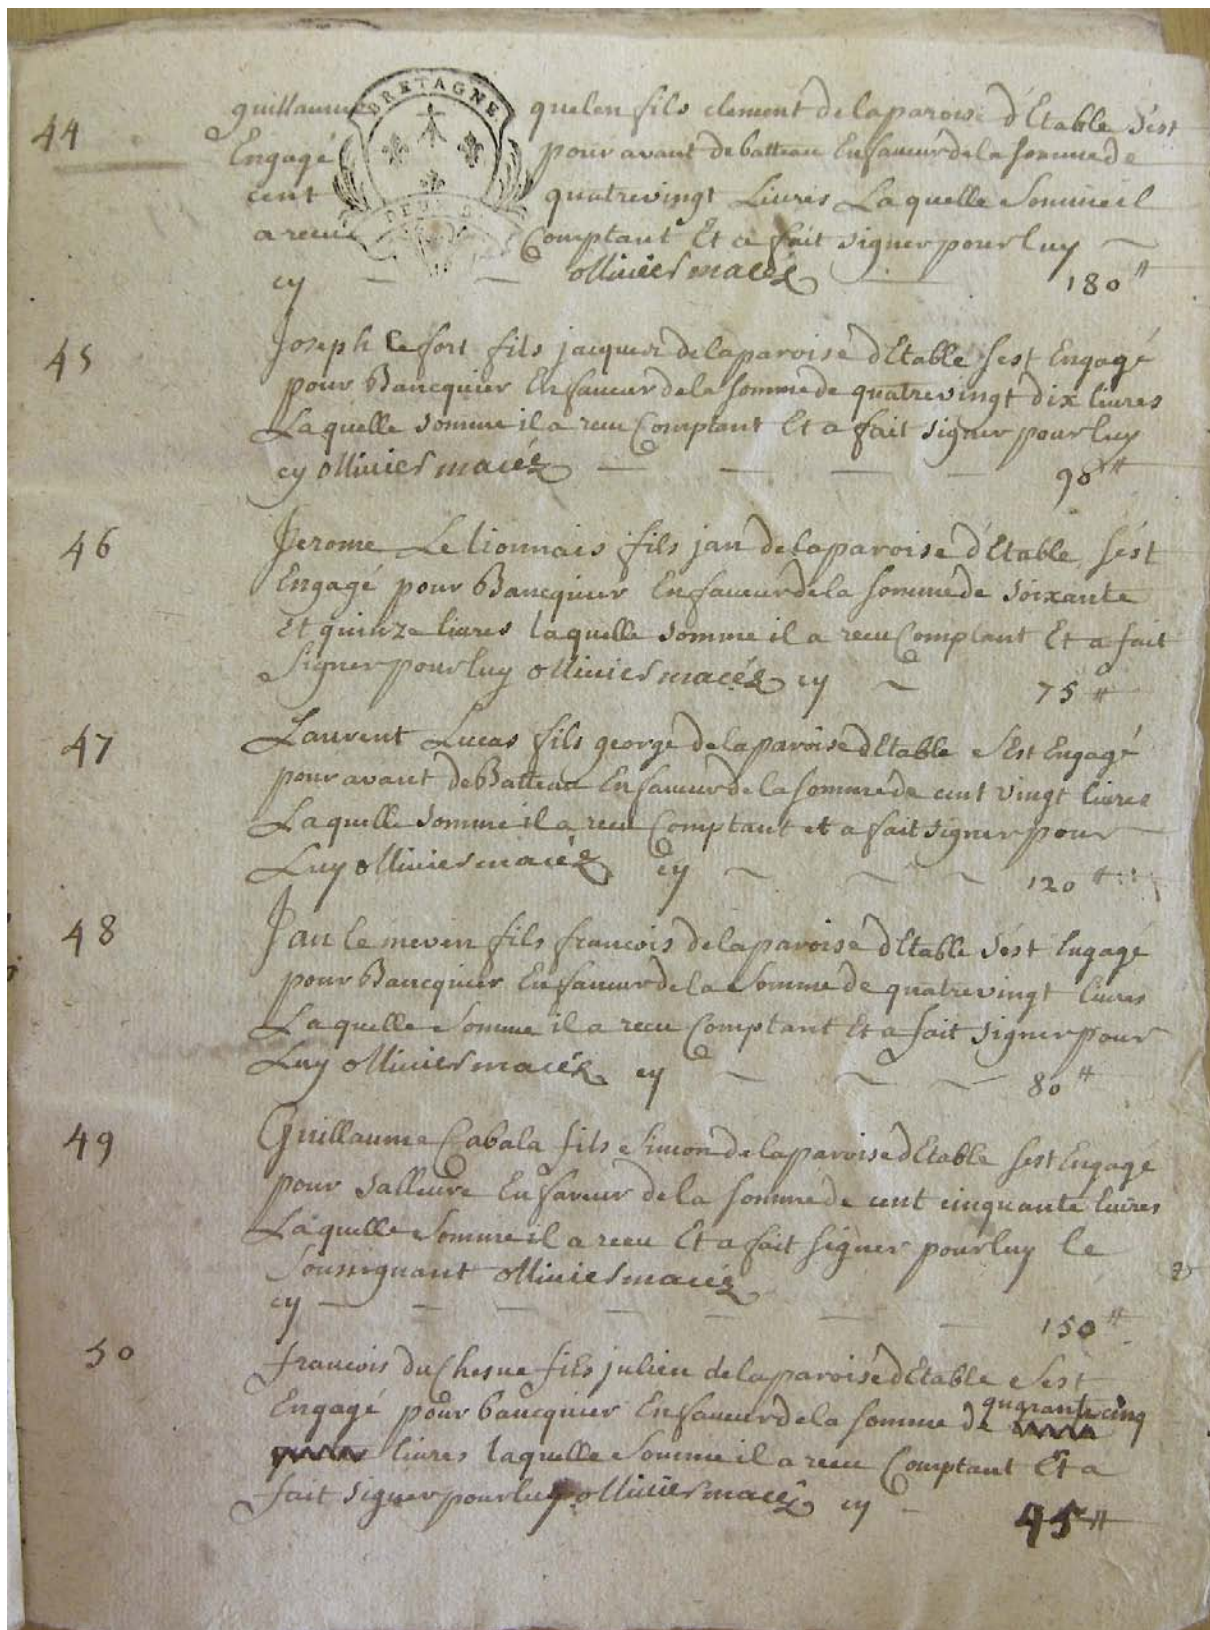 BRETAGNE
44 guillaume quelen fils clement de la paroise d'Etable s'est
Engagé pour avant de batteau En faveur de la somme de
cent quatre vingt Livres La quelle Somme il
a receu Comptant Et a fait signer pour luy
cy ollivier macé 180 ⁎
45 Joseph le fort fils jacques de la paroise d'Etable s'est Engagé
pour Bancquier En faveur de la somme de quatre vingt dix livres
La quelle somme il a receu Comptant Et a fait signer pour luy
cy ollivier macé 90
46 Jerome Le lionnais fils jan de la paroise d'Etable s'est
Engagé pour Bancquier En faveur de la somme de soixante
Et quinze livres laquelle somme il a receu Comptant Et a fait
Signer pour luy ollivier macé cy 75
47 Laurent Lucas fils george de la paroise d'Etable s'Est Engagé
pour avant de Batteau En faveur de la somme de cent vingt livres
La quelle somme il a receu Comptant et a fait signer pour
Luy ollivier macé cy 120
48 Jan le meven fils francois de la paroise d'Etable s'est Engagé
pour Bancquier En faveur de la Somme de quatre vingt livres
La quelle Somme il a receu Comptant Et a fait signer pour
Luy ollivier macé cy 80
49 Guillaume Cabala fils Simon de la paroise d'Etable s'est Engagé
pour salleure En faveur de la somme de cent cinquante livres
La quelle Somme il a receu Et a fait signer pour luy le
Soussignant ollivier macé
cy 150
50 francois du Chesne fils julien de la paroise d'Etable s'est
Engagé pour bancquier En faveur de la somme de quarante cinq
livres laquelle Somme il a receu Comptant Et a
fait signer pour luy ollivier macé cy 45